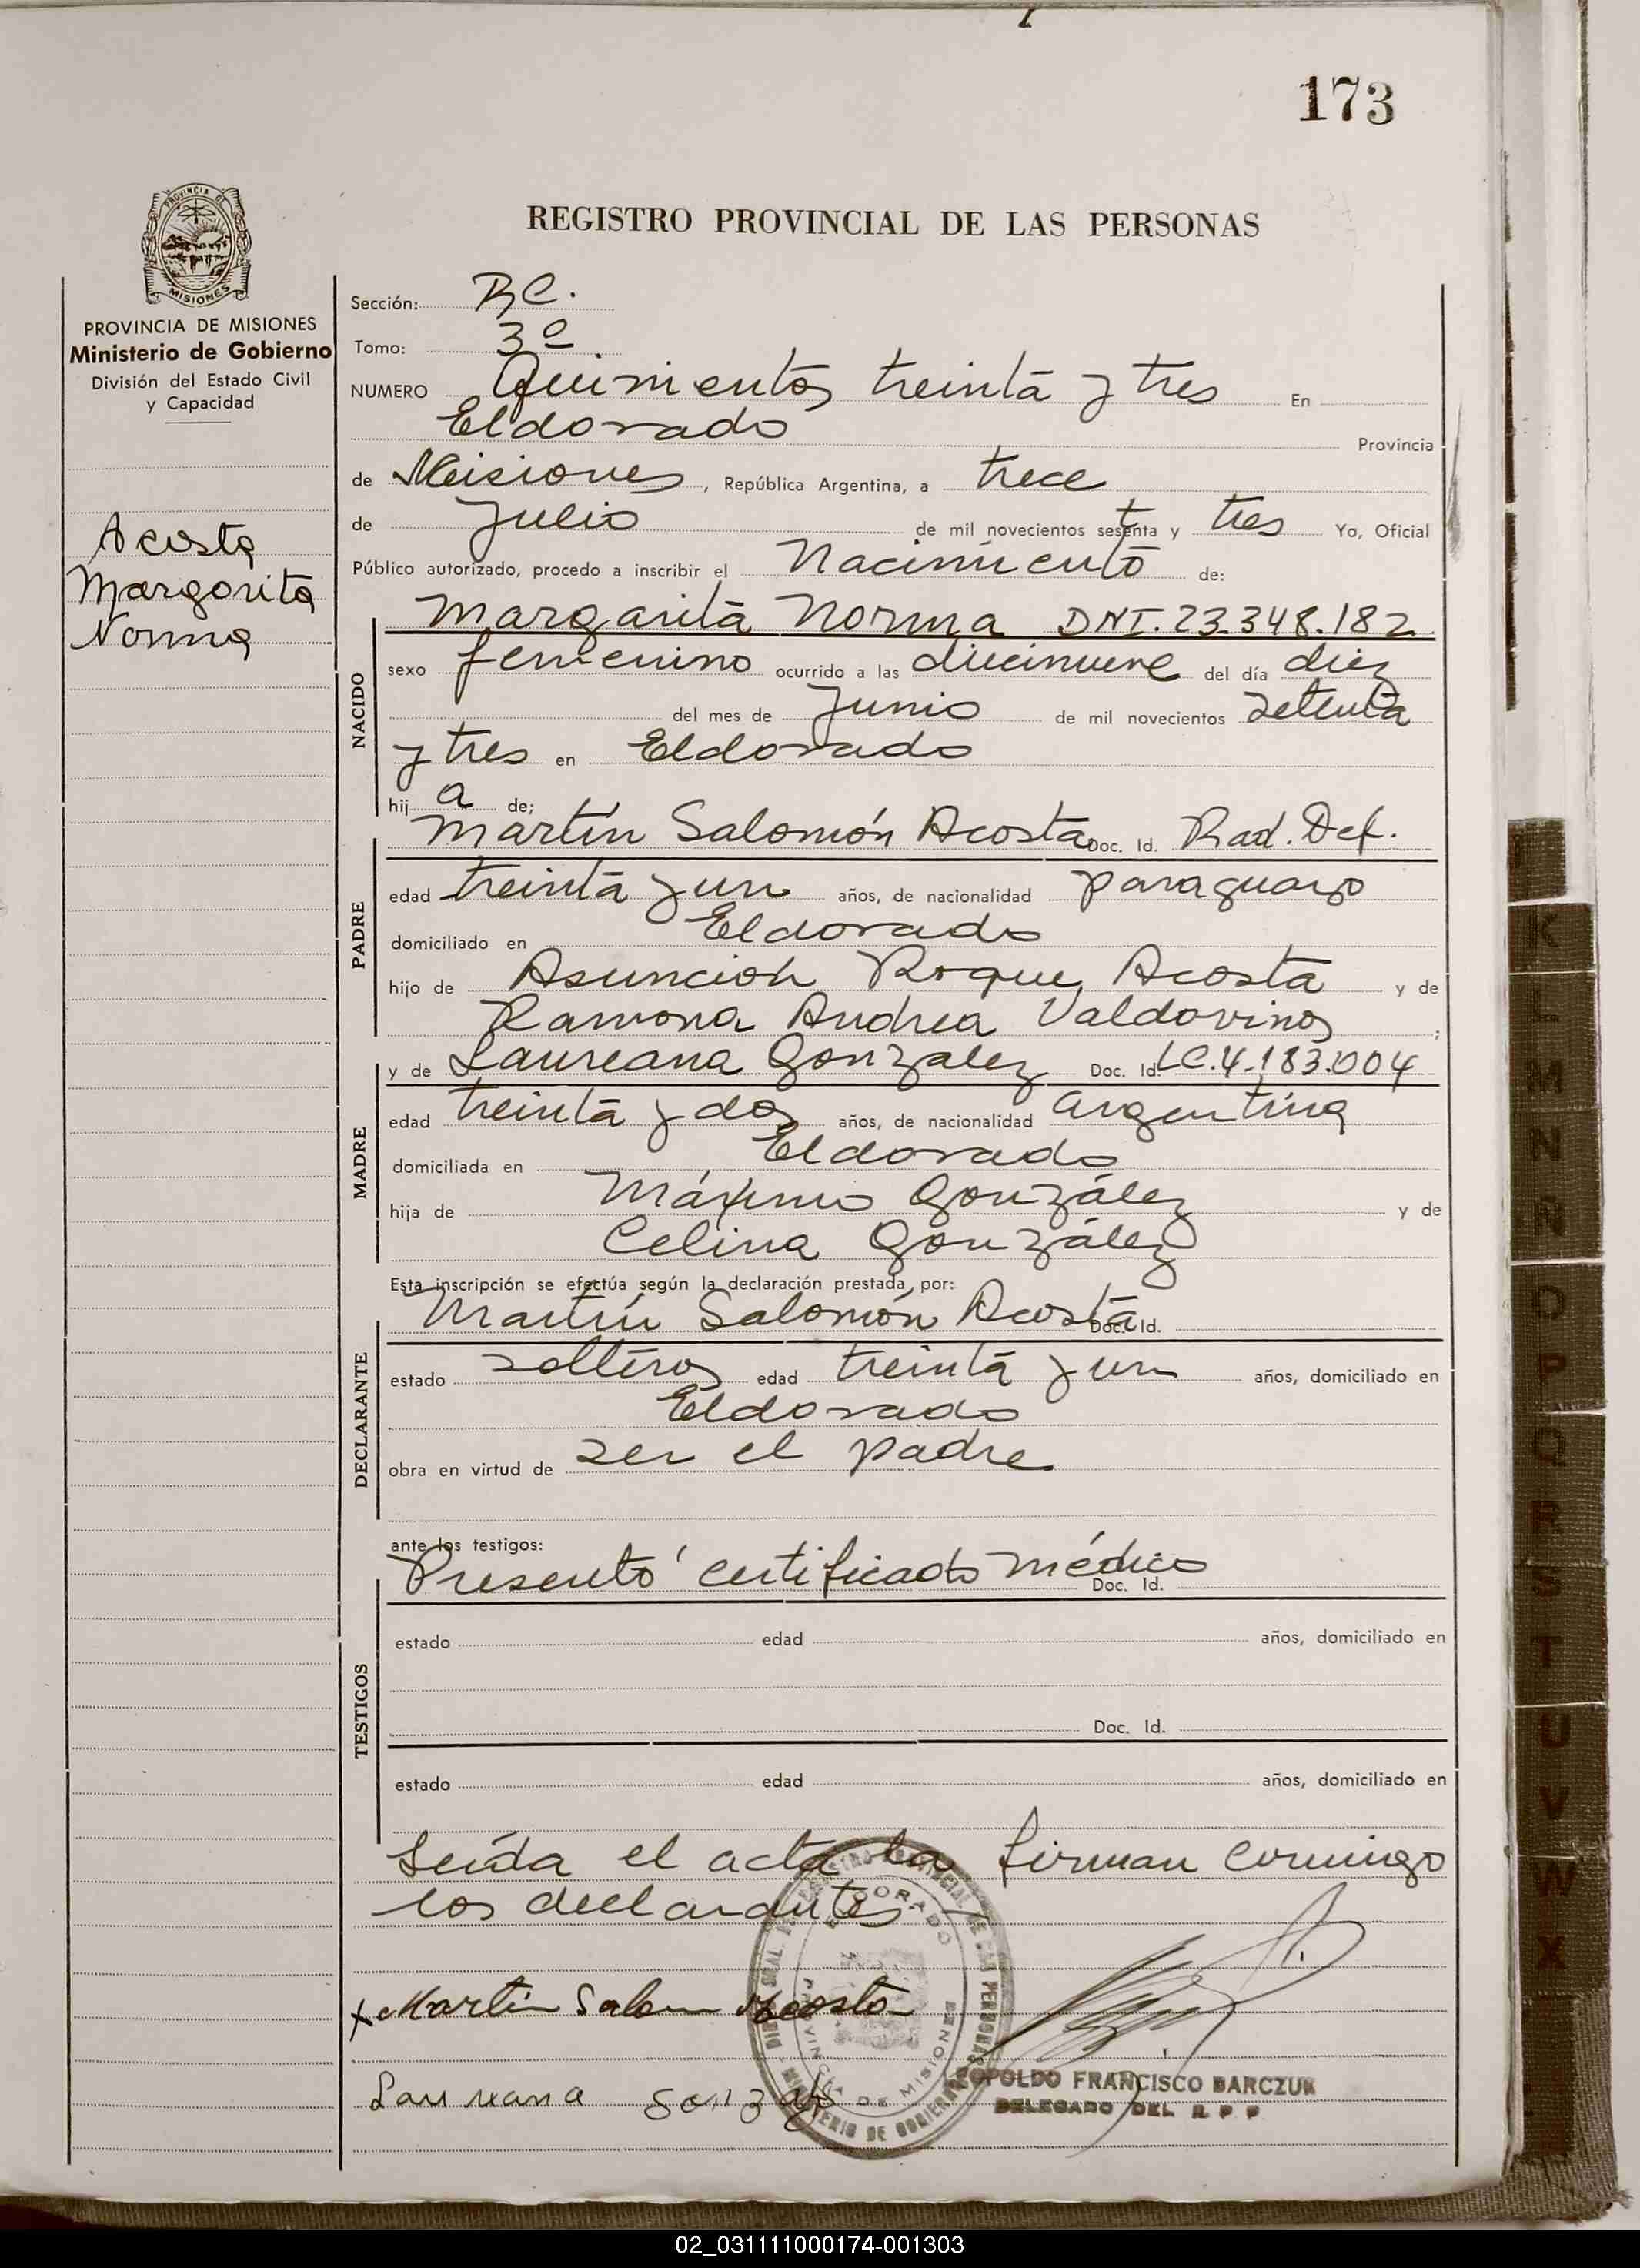 173
REGISTRO PROVINCIAL DE LAS PERSONAS
PROVINCIA DE MISIONES
PROVINCIA DE MISIONES
Ministerio de Gobierno
División del Estado Civil
y Capacidad
Acosta
Margarita
Norma
Sección: RC.
Tomo: 3º
NUMERO Quinientos treinta y tres En
Eldorado Provincia
de Misiones, República Argentina, a trece
de Julio de mil novecientos sesenta y tres Yo, Oficial
t
Público autorizado, procedo a inscribir el Nacimiento de:
NACIDO
Margarita Norma DNI. 23.348.182
sexo femenino ocurrido a las diecinueve del día diez
del mes de Junio de mil novecientos setenta
y tres en Eldorado
hij a de;
PADRE
Martín Salomón Acosta Doc. Id. Rad. Def.
edad treinta y un años, de nacionalidad paraguayo
domiciliado en Eldorado
hijo de Asunción Roque Acosta y de
Ramona Andrea Valdovinos ;
MADRE
y de Laureana Gonzalez Doc. Id. LC. 4.183.004
edad treinta y dos años, de nacionalidad argentina
domiciliada en Eldorado
hija de Máximo González y de
Celina González
Esta inscripción se efectúa según la declaración prestada por:
DECLARANTE
Martín Salomón Acosta Doc. Id.
estado solteros edad treinta y un años, domiciliado en
Eldorado
obra en virtud de ser el padre
ante los testigos:
TESTIGOS
Presentó certificado médico Doc. Id.
estado edad años, domiciliado en
Doc. Id.
estado edad años, domiciliado en
Leída el acta la firman conmigo
los declarantes
x Martin Salom Acosta
Laureana Gonzalez
ELDORADO
PROVINCIA DE MISIONES
LEOPOLDO FRANCISCO BARCZUK
DELEGADO DEL R P P
K
L
M
N
Ñ
O
P
Q
R
S
T
U
V
W
X
02_031111000174-001303